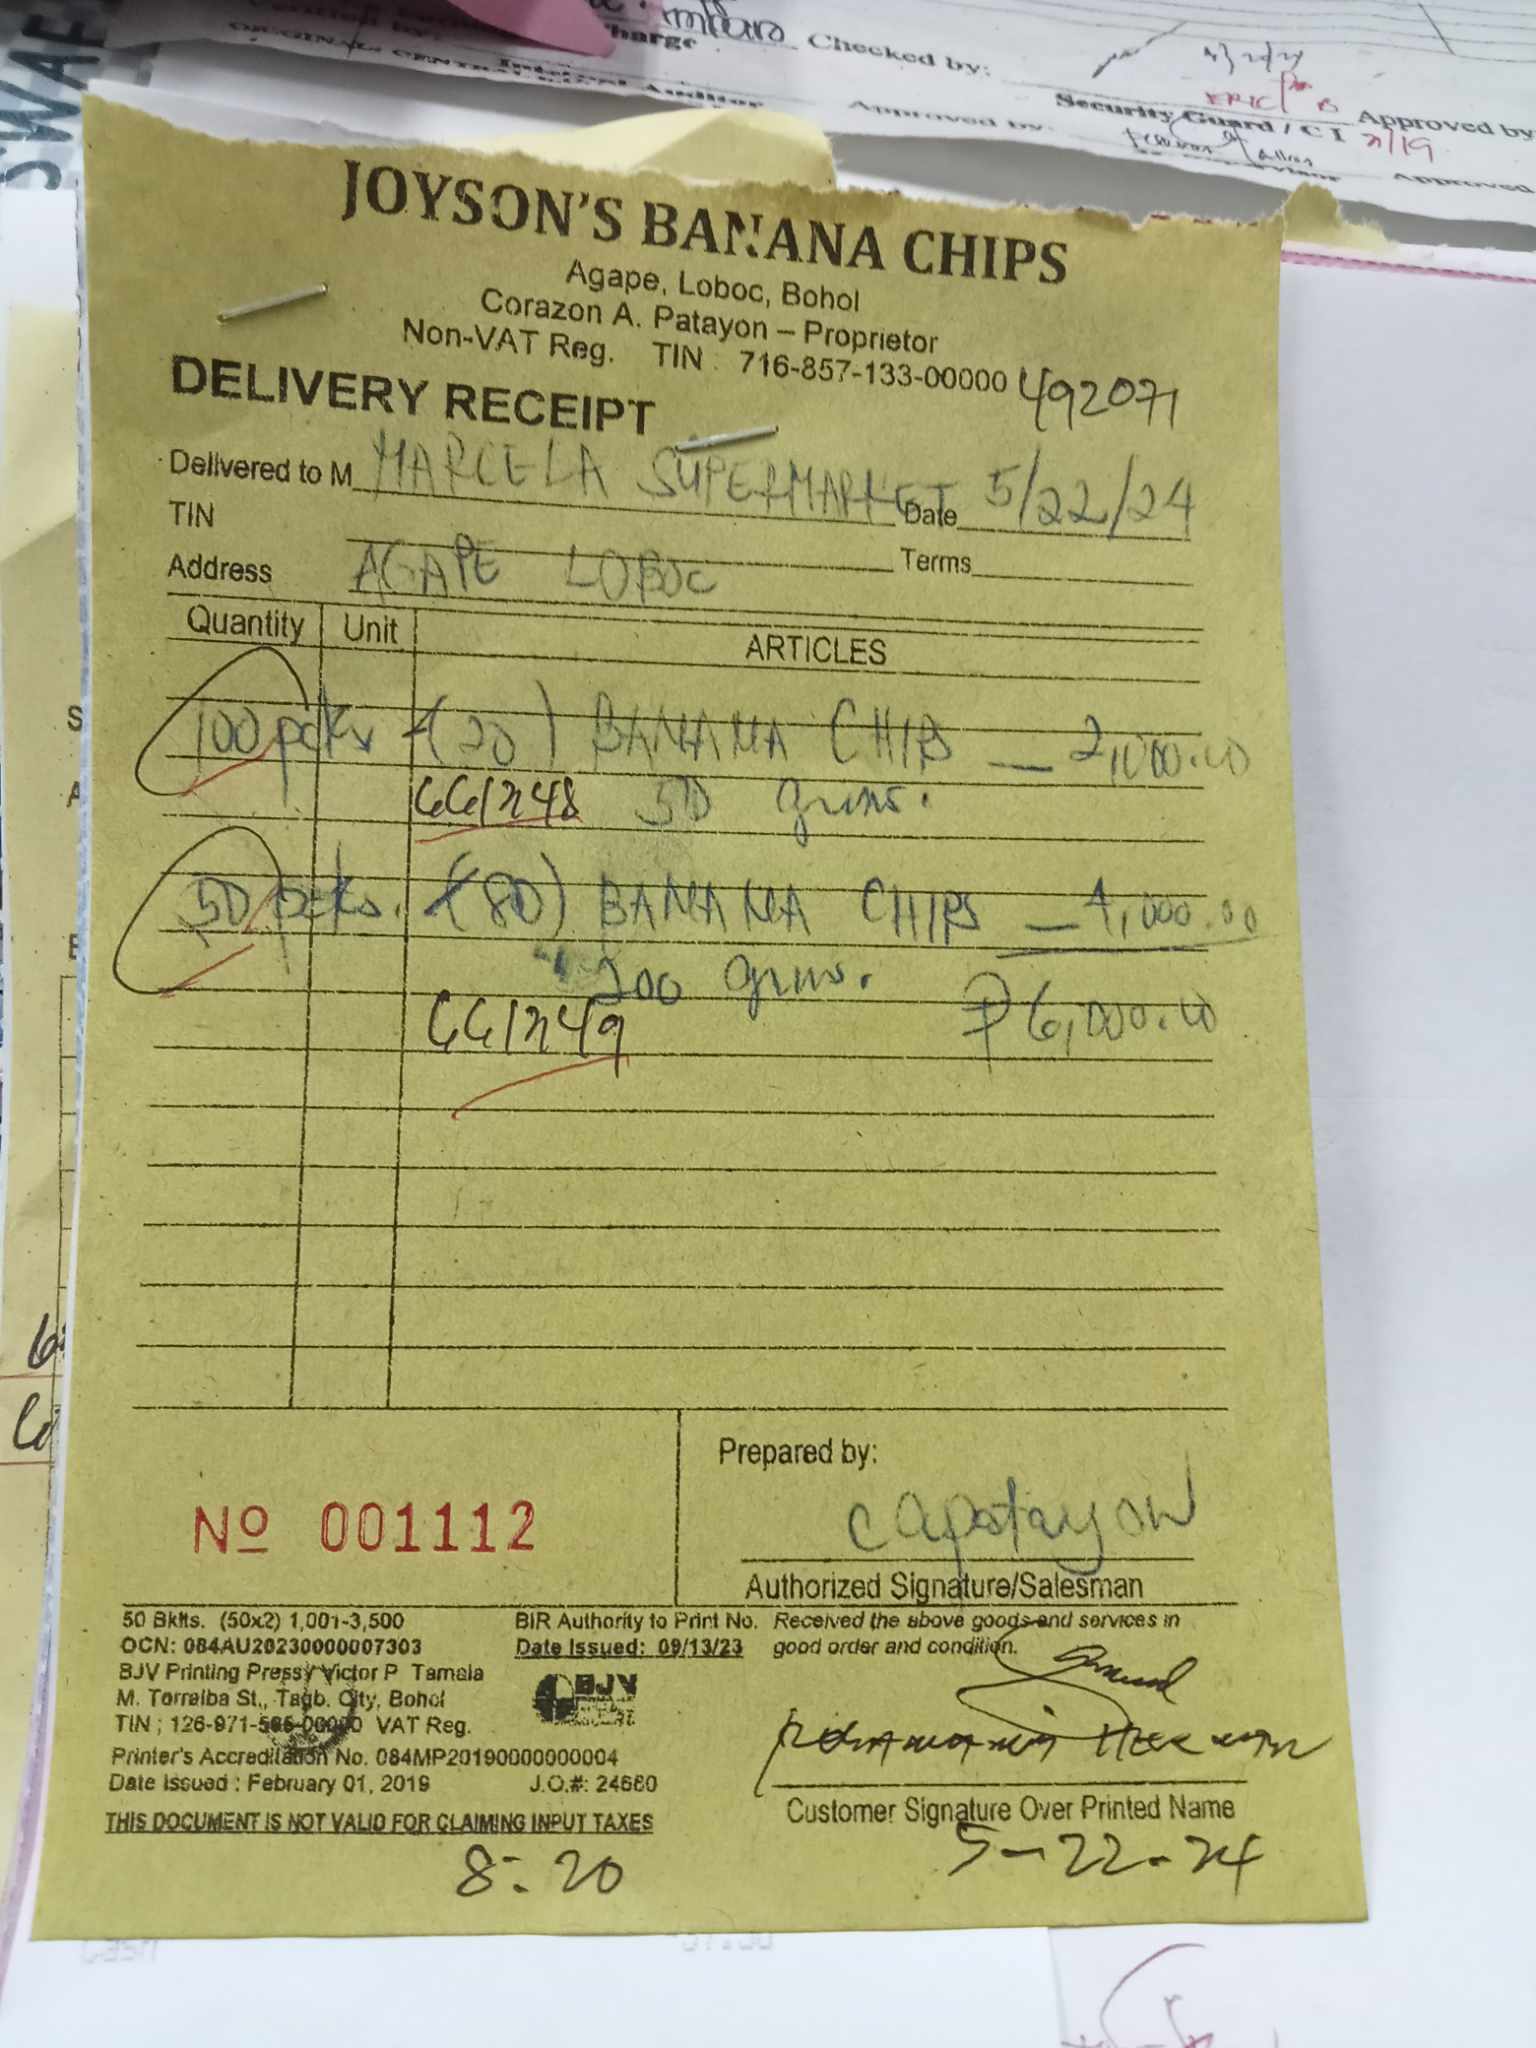 Checked by:
Security Guard / C I
Approved by
Approved by:
JOYSON'S BANANA CHIPS
Agape, Loboc, Bohol
Corazon A. Patayon – Proprietor
Non-VAT Reg. TIN : 716-857-133-00000 492071
DELIVERY RECEIPT
Delivered to M MARCELA SUPERMARKET Date 5/22/24
TIN Terms
Address AGAPE LOBOC
Quantity Unit ARTICLES
100 pcks (20) BANANA CHIPS — 2,000.00
50 grms.
50 pcks. (80) BANANA CHIPS — 4,000.00
200 grms. ₱ 6,000.00
Prepared by:
capatayon
Authorized Signature/Salesman
Nº 001112
50 Bklts. (50x2) 1,001-3,500
OCN: 084AU20230000007303
BJV Printing Press/ Victor P Tamala
M. Torralba St., Tagb. City, Bohol
TIN ; 126-971-565-00000 VAT Reg.
Printer's Accreditation No. 084MP20190000000004
Date Issued : February 01, 2019 J.O.#: 24660
THIS DOCUMENT IS NOT VALID FOR CLAIMING INPUT TAXES
BIR Authority to Print No.
Date Issued: 09/13/23
BJV
Received the above goods and services in
good order and condition.
Customer Signature Over Printed Name
8:20
5-22-24